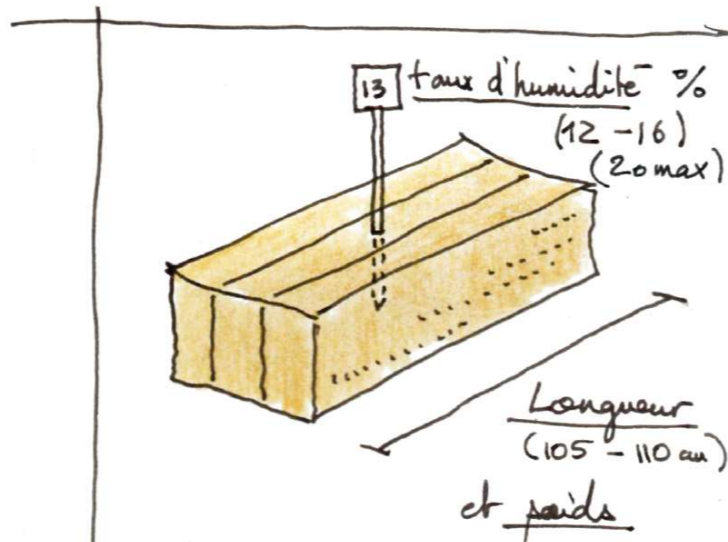 13 taux d'humidité %
(12 - 16)
(20 max)
Longueur
(105 - 110 cm)
et poids